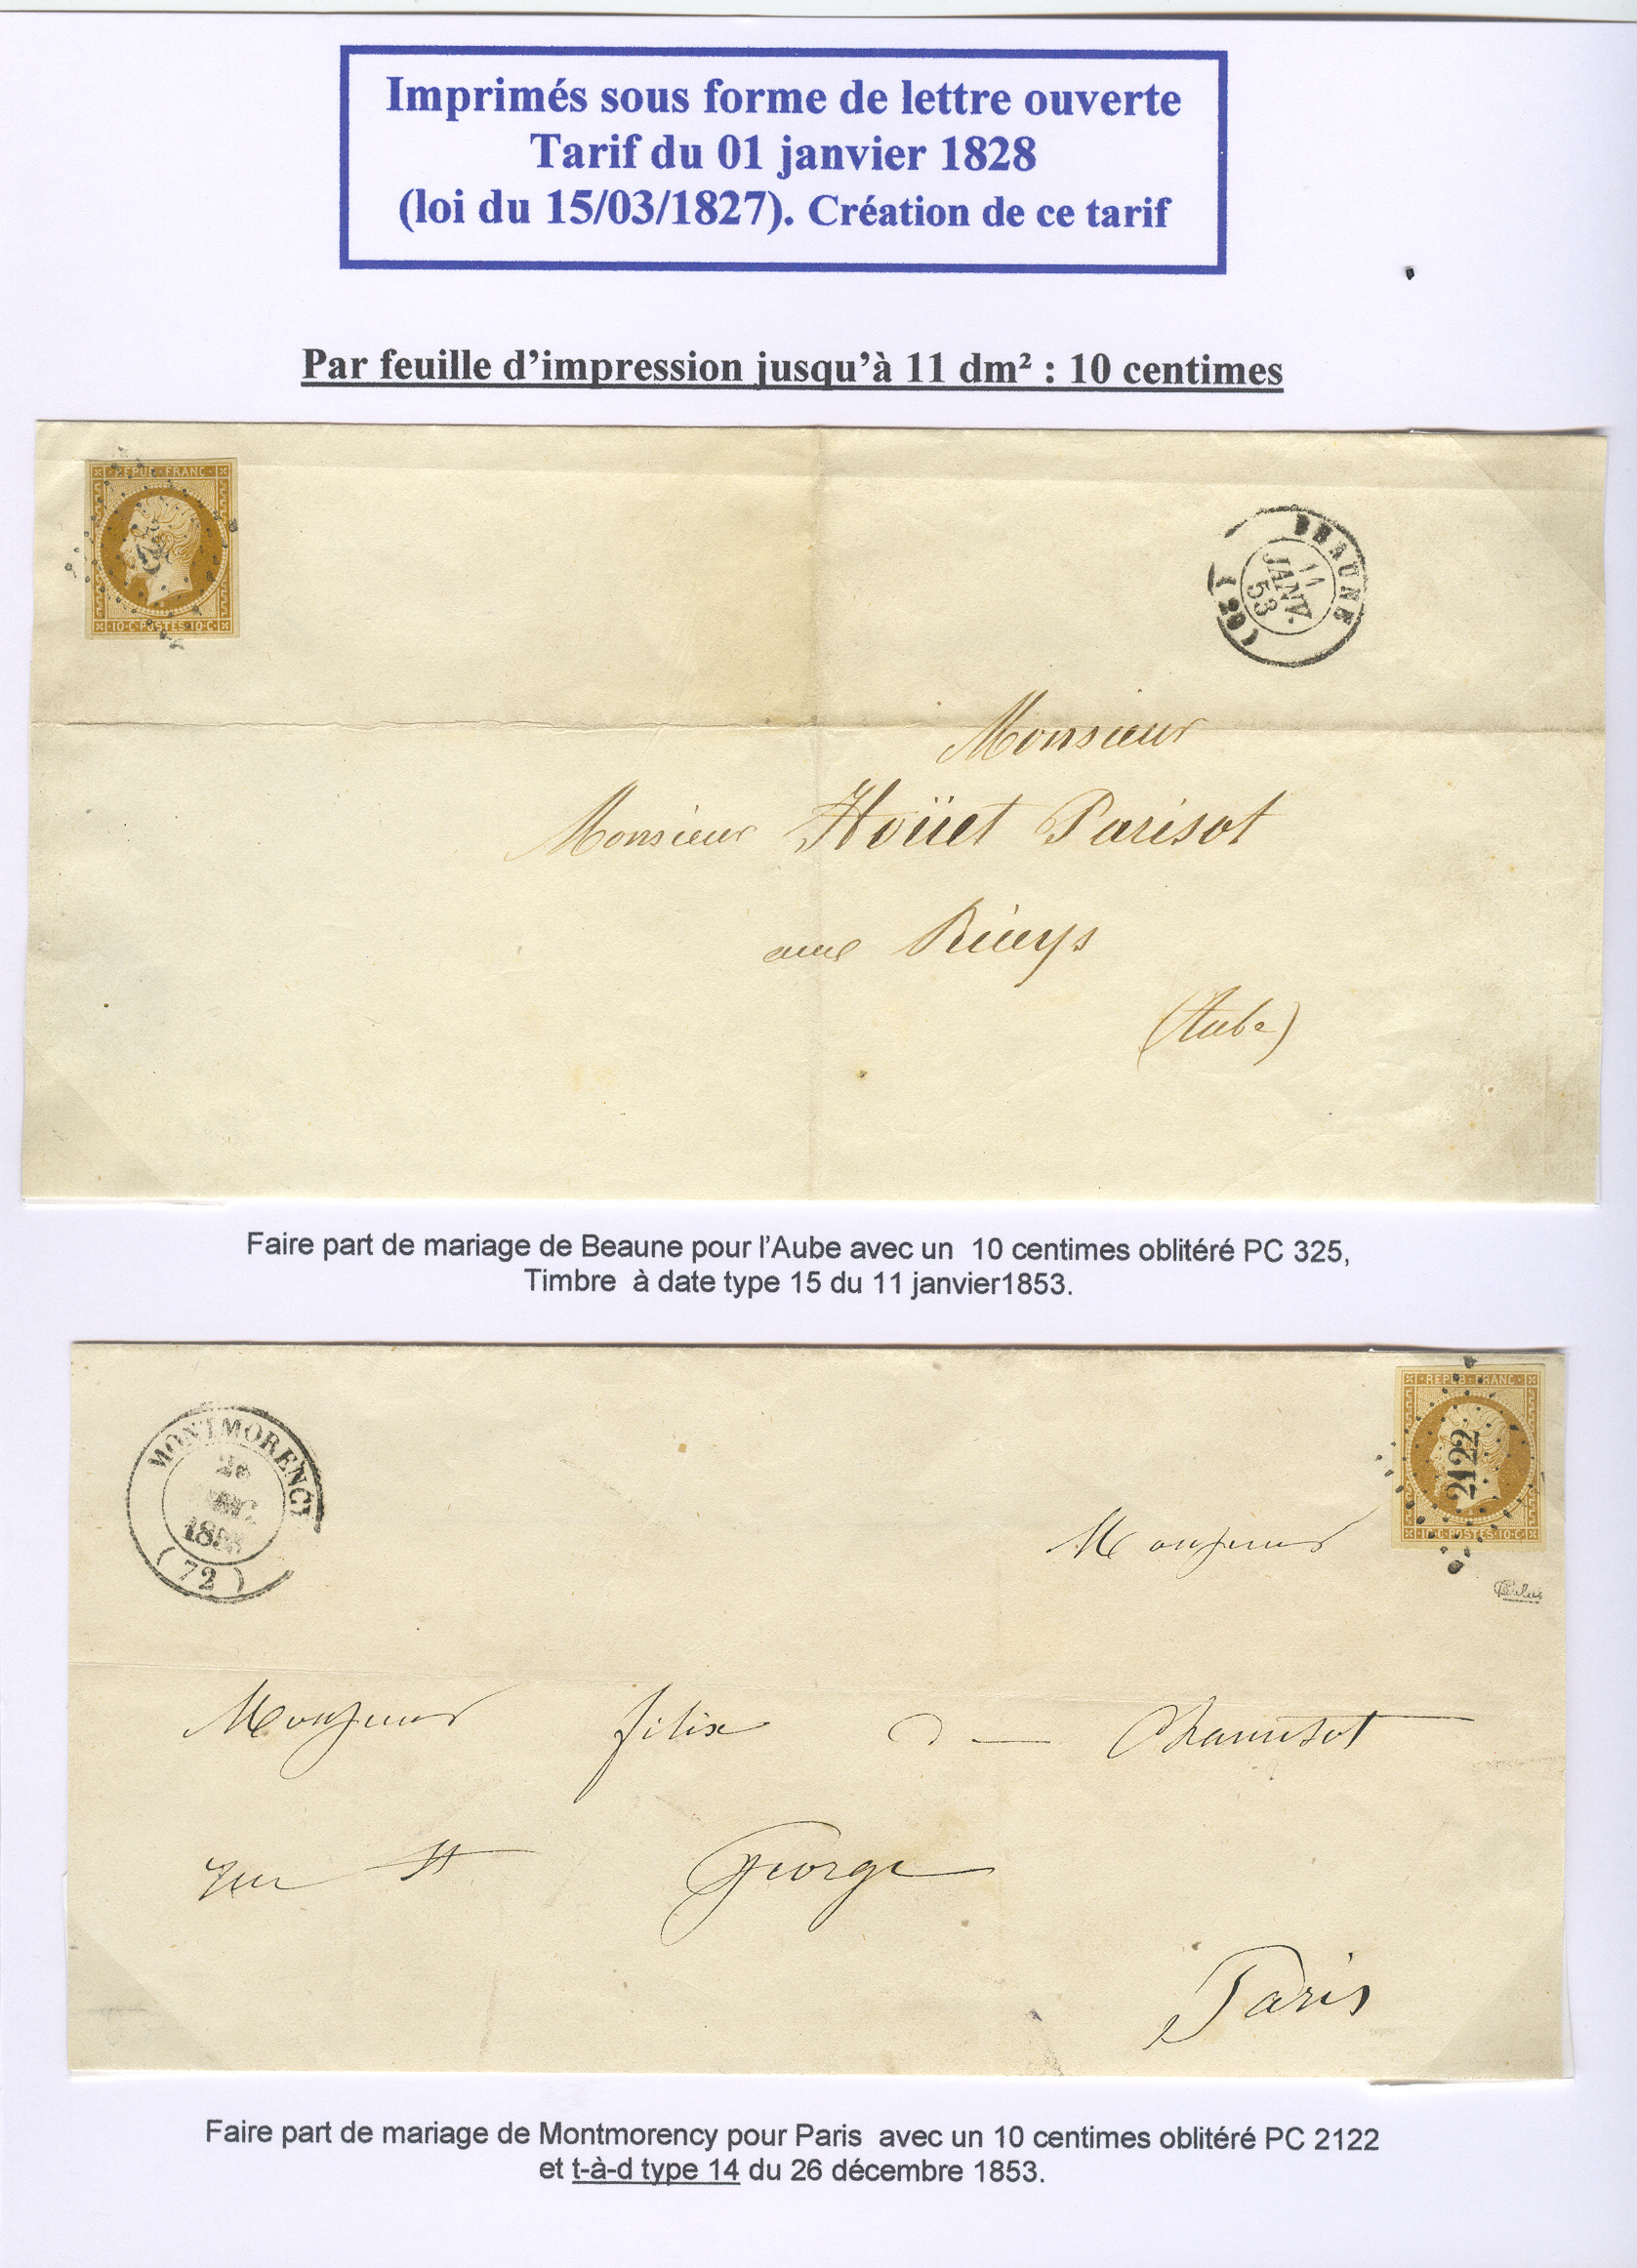 Imprimés sous forme de lettre ouverte
Tarif du 01 janvier 1828
(loi du 15/03/1827). Création de ce tarif
Par feuille d'impression jusqu'à 11 dm² : 10 centimes
REPUB · FRANC ·
· 10 · C · POSTES · 10 · C ·
BEAUNE
11
JANV.
53
(20)
Monsieur
Monsieur Hoüet Parisot
aux Riceys
(Aube)
Faire part de mariage de Beaune pour l'Aube avec un 10 centimes oblitéré PC 325,
Timbre à date type 15 du 11 janvier1853.
MONTMORENCY
26
DEC
1853
(72)
· REPUB · FRANC ·
· 10 · C · POSTES · 10 · C ·
2122
Monsieur
Monsieur félix de Chamisot
rue St George
Paris
Faire part de mariage de Montmorency pour Paris avec un 10 centimes oblitéré PC 2122
et t-à-d type 14 du 26 décembre 1853.